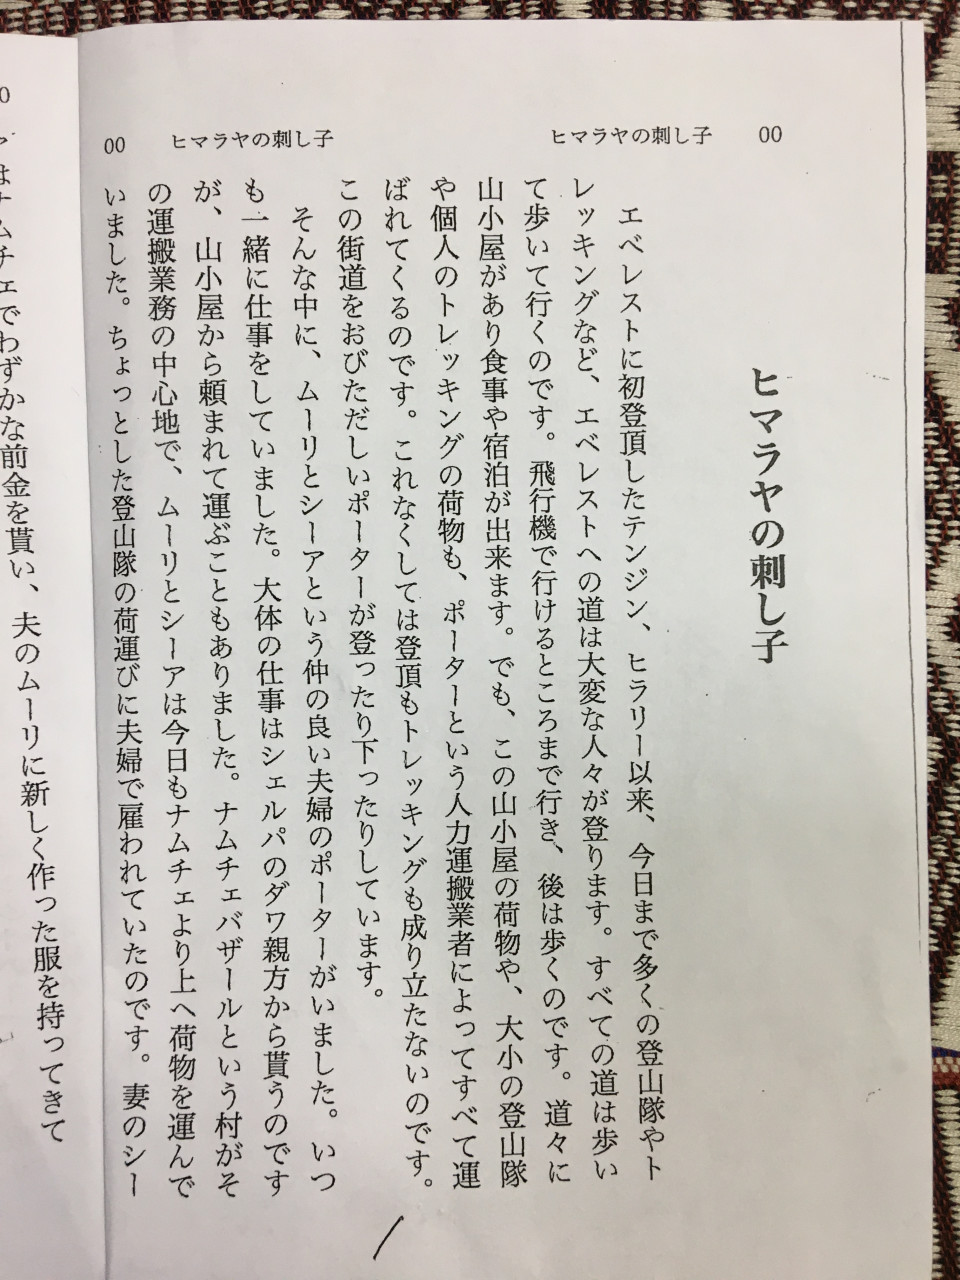 00 ヒマラヤの刺し子
ヒマラヤの刺し子 00
ヒマラヤの刺し子
エベレストに初登頂したテンジン、ヒラリー以来、今日まで多くの登山隊やト
レッキングなど、エベレストへの道は大変な人々が登ります。すべての道は歩い
て歩いて行くのです。飛行機で行けるところまで行き、後は歩くのです。道々に
山小屋があり食事や宿泊が出来ます。でも、この山小屋の荷物や、大小の登山隊
や個人のトレッキングの荷物も、ポーターという人力運搬業者によってすべて運
ばれてくるのです。これなくしては登頂もトレッキングも成り立たないのです。
この街道をおびただしいポーターが登ったり下ったりしています。
そんな中に、ムーリとシーアという仲の良い夫婦のポーターがいました。いつ
も一緒に仕事をしていました。大体の仕事はシェルパのダワ親方から貰うのです
が、山小屋から頼まれて運ぶこともありました。ナムチェバザールという村がそ
の運搬業務の中心地で、ムーリとシーアは今日もナムチェより上へ荷物を運んで
いました。ちょっとした登山隊の荷運びに夫婦で雇われていたのです。妻のシー
はナムチェでわずかな前金を貰い、夫のムーリに新しく作った服を持ってきて